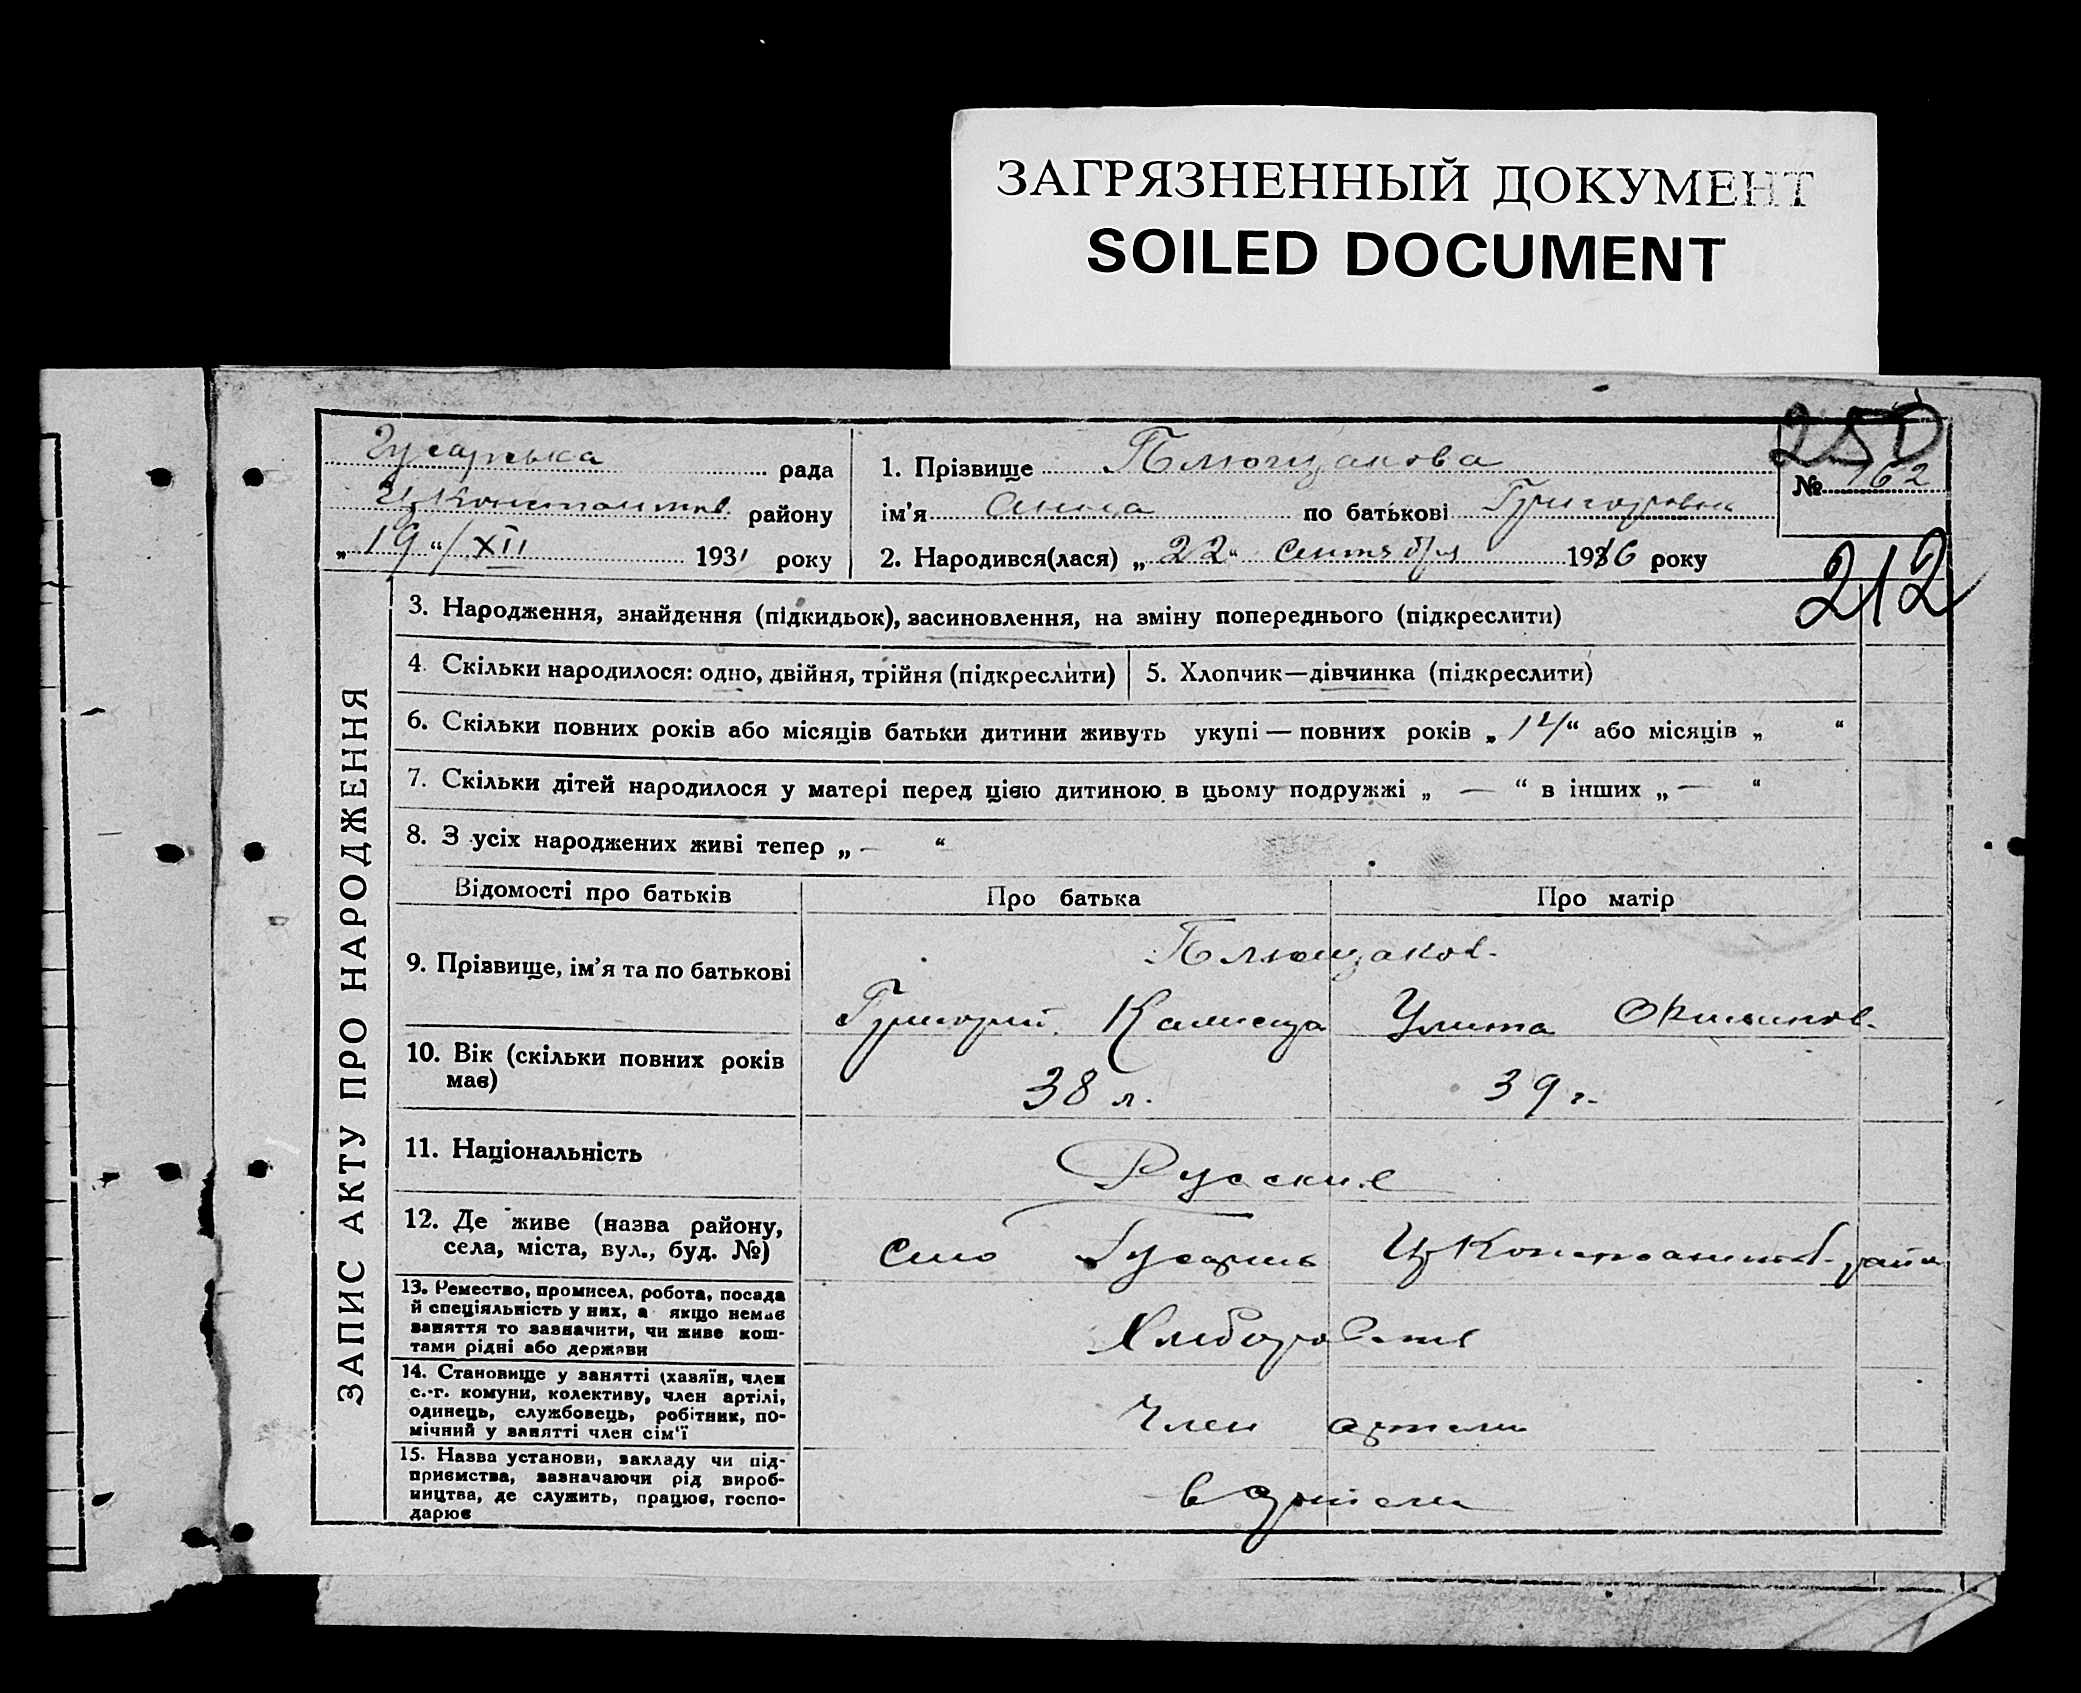 ЗАГРЯЗНЕННЫЙ ДОКУМЕНТ
SOILED DOCUMENT
250
Гусарська рада
Ц Константинов. району
„19“/XII 1931 року
1. Прізвище Плющакова
ім'я Анна по батькові Григоровна
2. Народився(лася) „22“ Сентября 1916 року
№ 162
212
ЗАПИС АКТУ ПРО НАРОДЖЕННЯ
3. Народження, знайдення (підкидьок), засиновлення, на зміну попереднього (підкреслити)
4. Скільки народилося: одно, двійня, трійня (підкреслити)
5. Хлопчик—дівчинка (підкреслити)
6. Скільки повних років або місяців батьки дитини живуть укупі — повних років „14“ або місяців „ “
7. Скільки дітей народилося у матері перед цією дитиною в цьому подружжі „ — “ в інших „ — “
8. З усіх народжених живі тепер „ — “
Відомості про батьків
Про батька
Про матір
9. Прізвище, ім'я та по батькові
Плющаков.
Григорий Улита
10. Вік (скільки повних років
має)
38 л.
39 г.
11. Національність
Русские
12. Де живе (назва району,
села, міста, вул., буд. №)
Село Ц Константинов. район
13. Ремество, промисел, робота, посада
й спеціяльність у них, а якщо немає
заняття то зазначити, чи живе кош-
тами рідні або держави
14. Становище у занятті (хазяїн, член
с.-г. комуни, колективу, член артілі,
одинець, службовець, робітник, по-
мічний у занятті член сім'ї
Член артели
15. Назва установи, закладу чи під-
приємства, зазначаючи рід вироб-
ництва, де служить, працює, госпо-
дарює
в артели